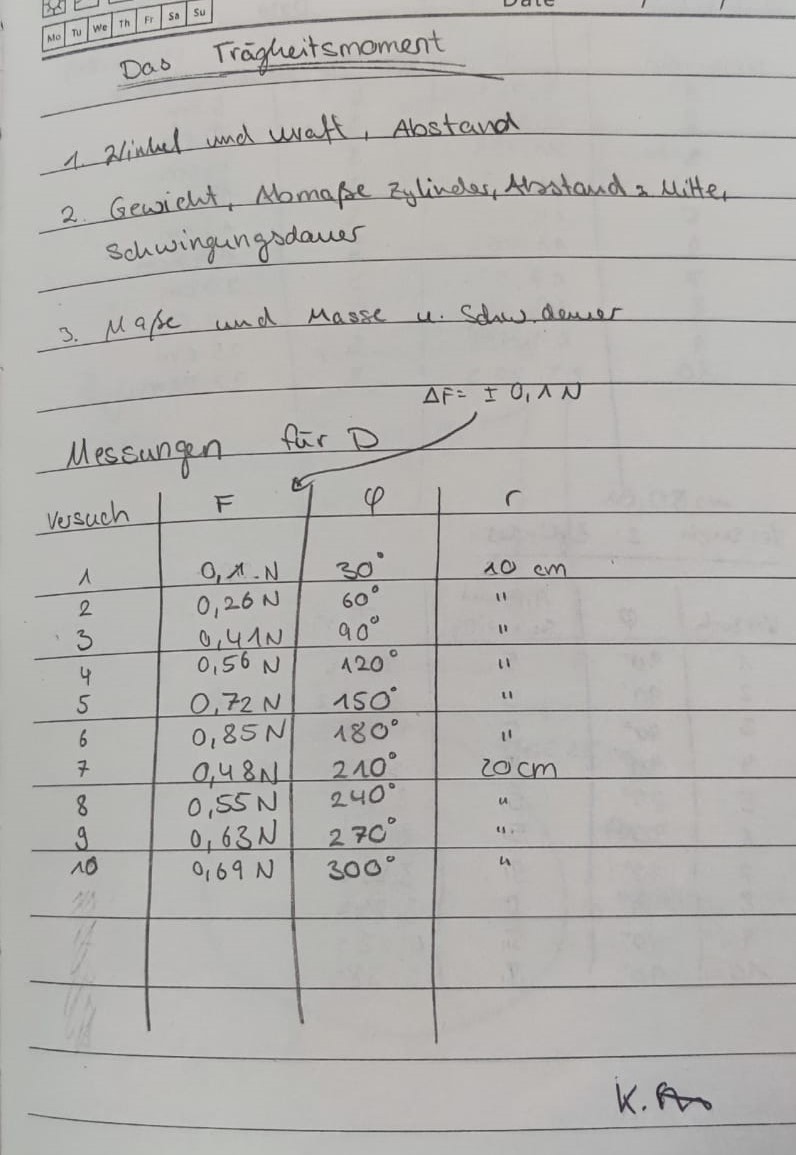 Date / /
Mo Tu We Th Fr Sa Su
Das Trägheitsmoment
1. Winkel und Kraft, Abstand
2. Gewicht, Abmaße Zylinder, Abstand z Mitte,
Schwingungsdauer
3. Maße und Masse u. Schw.dauer
ΔF= ± 0,1 N
Messungen für D
Versuch F φ r
1 0,1 N 30° 10 cm
2 0,26 N 60° "
3 0,41N 90° "
4 0,56 N 120° "
5 0,72 N 150° "
6 0,85N 180° "
7 0,48N 210° 20cm
8 0,55N 240° "
9 0,63N 270° "
10 0,69 N 300° "
K.